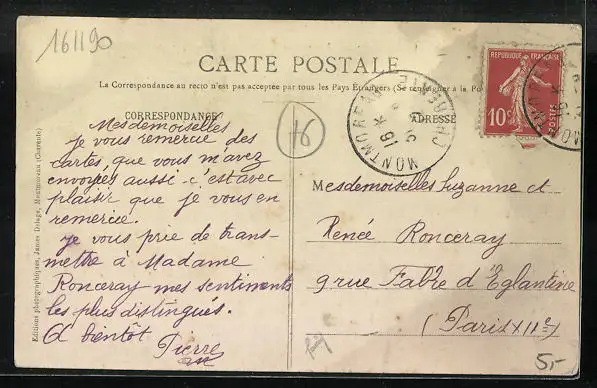 161190
CARTE POSTALE
La Correspondance au recto n'est pas acceptée par tous les Pays Étrangers (Se renseigner à la Po
CORRESPONDANCE
ADRESSE
16
RÉPUBLIQUE FRANÇAISE
10c
POSTES
MONTMOREAU CHARENTE
Mesdemoiselles
je vous remercie des
cartes, que vous m'avez
envoyés aussi c'est avec
plaisir que je vous en
remercie.
je vous prie de trans-
mettre à Madame
Ronceray mes sentiments
les plus distingués.
A bientôt
Pierre
Mesdemoiselles Suzanne et
Renée Ronceray
9 rue Fabre d'Eglantine
(Paris XIIe)
Editions photographiques, James Delage, Montmoreau (Charente)
5,-